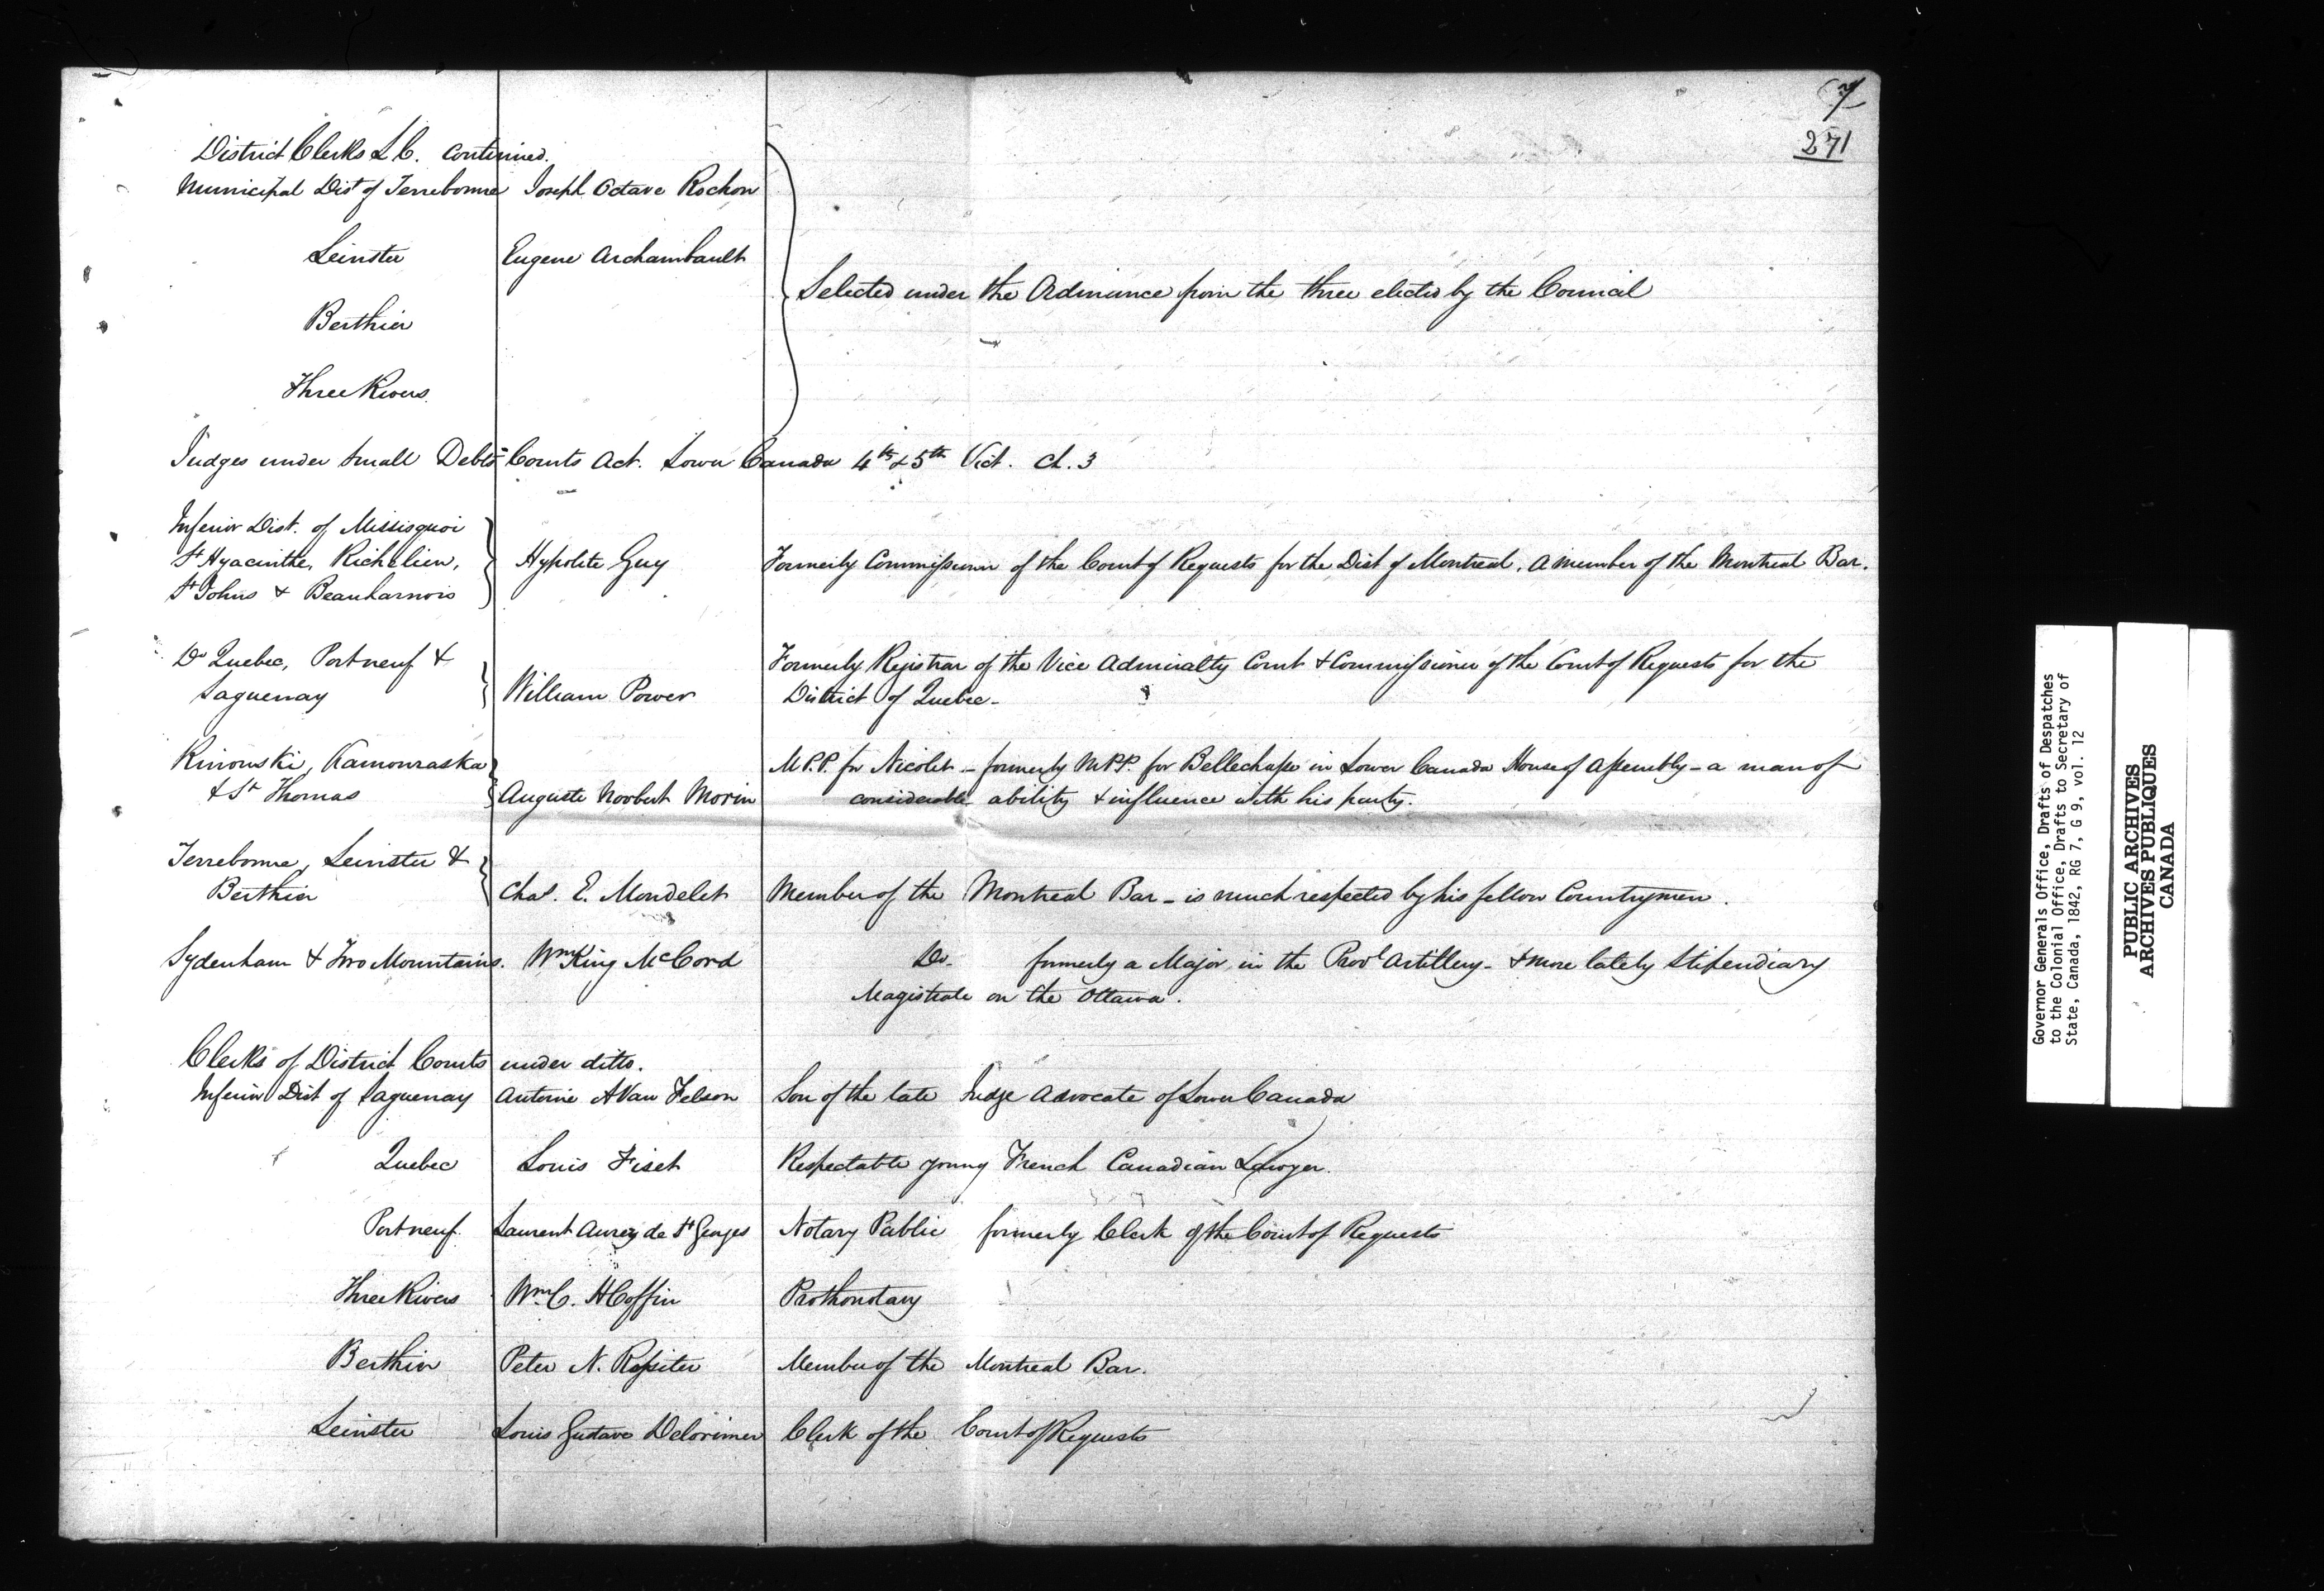 7
271
District Clerks L.C. continued.
Municipal Dist of Terrebonne Joseph Octave Rochon
Leinster Eugene Archambault
Selected under the Ordinance from the three elected by the Council
Berthier
Three Rivers.
Judges under Small Debts Courts Act. Lower Canada 4th & 5th Vict. Ch. 3
Inferior Dist. of Missisquoi
St Hyacinthe, Richelieu,
St Johns & Beauharnois
Hypolite Guy Formerly Commissioner of the Court of Requests for the Dist of Montreal. A member of the Montreal Bar.
Do Quebec, Portneuf &
Saguenay
William Power Formerly Registrar of the Vice Admiralty Court & Commissioner of the Court of Requests for the
District of Quebec -
Rimouski, Kamouraska
& St Thomas
Auguste Norbert Morin M.P.P. for Nicolet - formerly M.P.P. for Bellechasse in Lower Canada House of Assembly - a man of
considerable ability & influence with his party.
Terrebonne, Leinster &
Berthier Chas. E. Mondelet Member of the Montreal Bar - is much respected by his fellow Countrymen.
Sydenham & Two Mountains. Wm King McCord Do. formerly a Major in the Provl Artillery - & more lately Stipendiary
Magistrate on the Ottawa.
Clerks of District Courts under ditto.
Inferior Dist of Saguenay Antoine A Van Felson Son of the late Judge Advocate of Lower Canada
Quebec Louis Fiset Respectable young French Canadian Lawyer.
Portneuf. Laurent Aurey de St Georges Notary Public formerly Clerk of the Court of Requests
Three Rivers Wm. C. H Coffin Prothonotary
Berthier Peter N. Rossiter Member of the Montreal Bar.
Leinster Louis Gustave Delorimer Clerk of the Court of Requests
Governor Generals Office, Drafts of Despatches
to the Colonial Office, Drafts to Secretary of
State, Canada, 1842, RG 7, G 9, vol. 12
PUBLIC ARCHIVES
ARCHIVES PUBLIQUES
CANADA